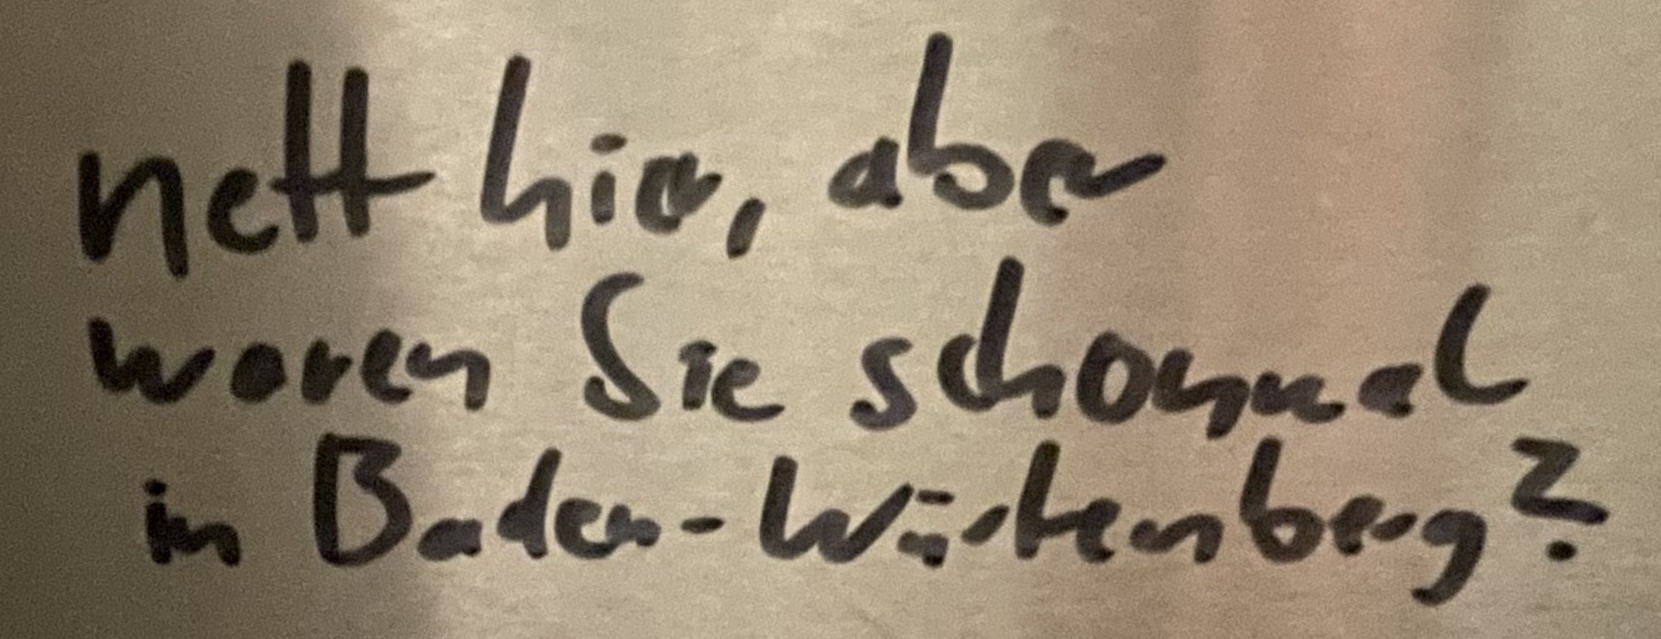 nett hier, aber
waren Sie schonmal
in Baden-Würtenberg?